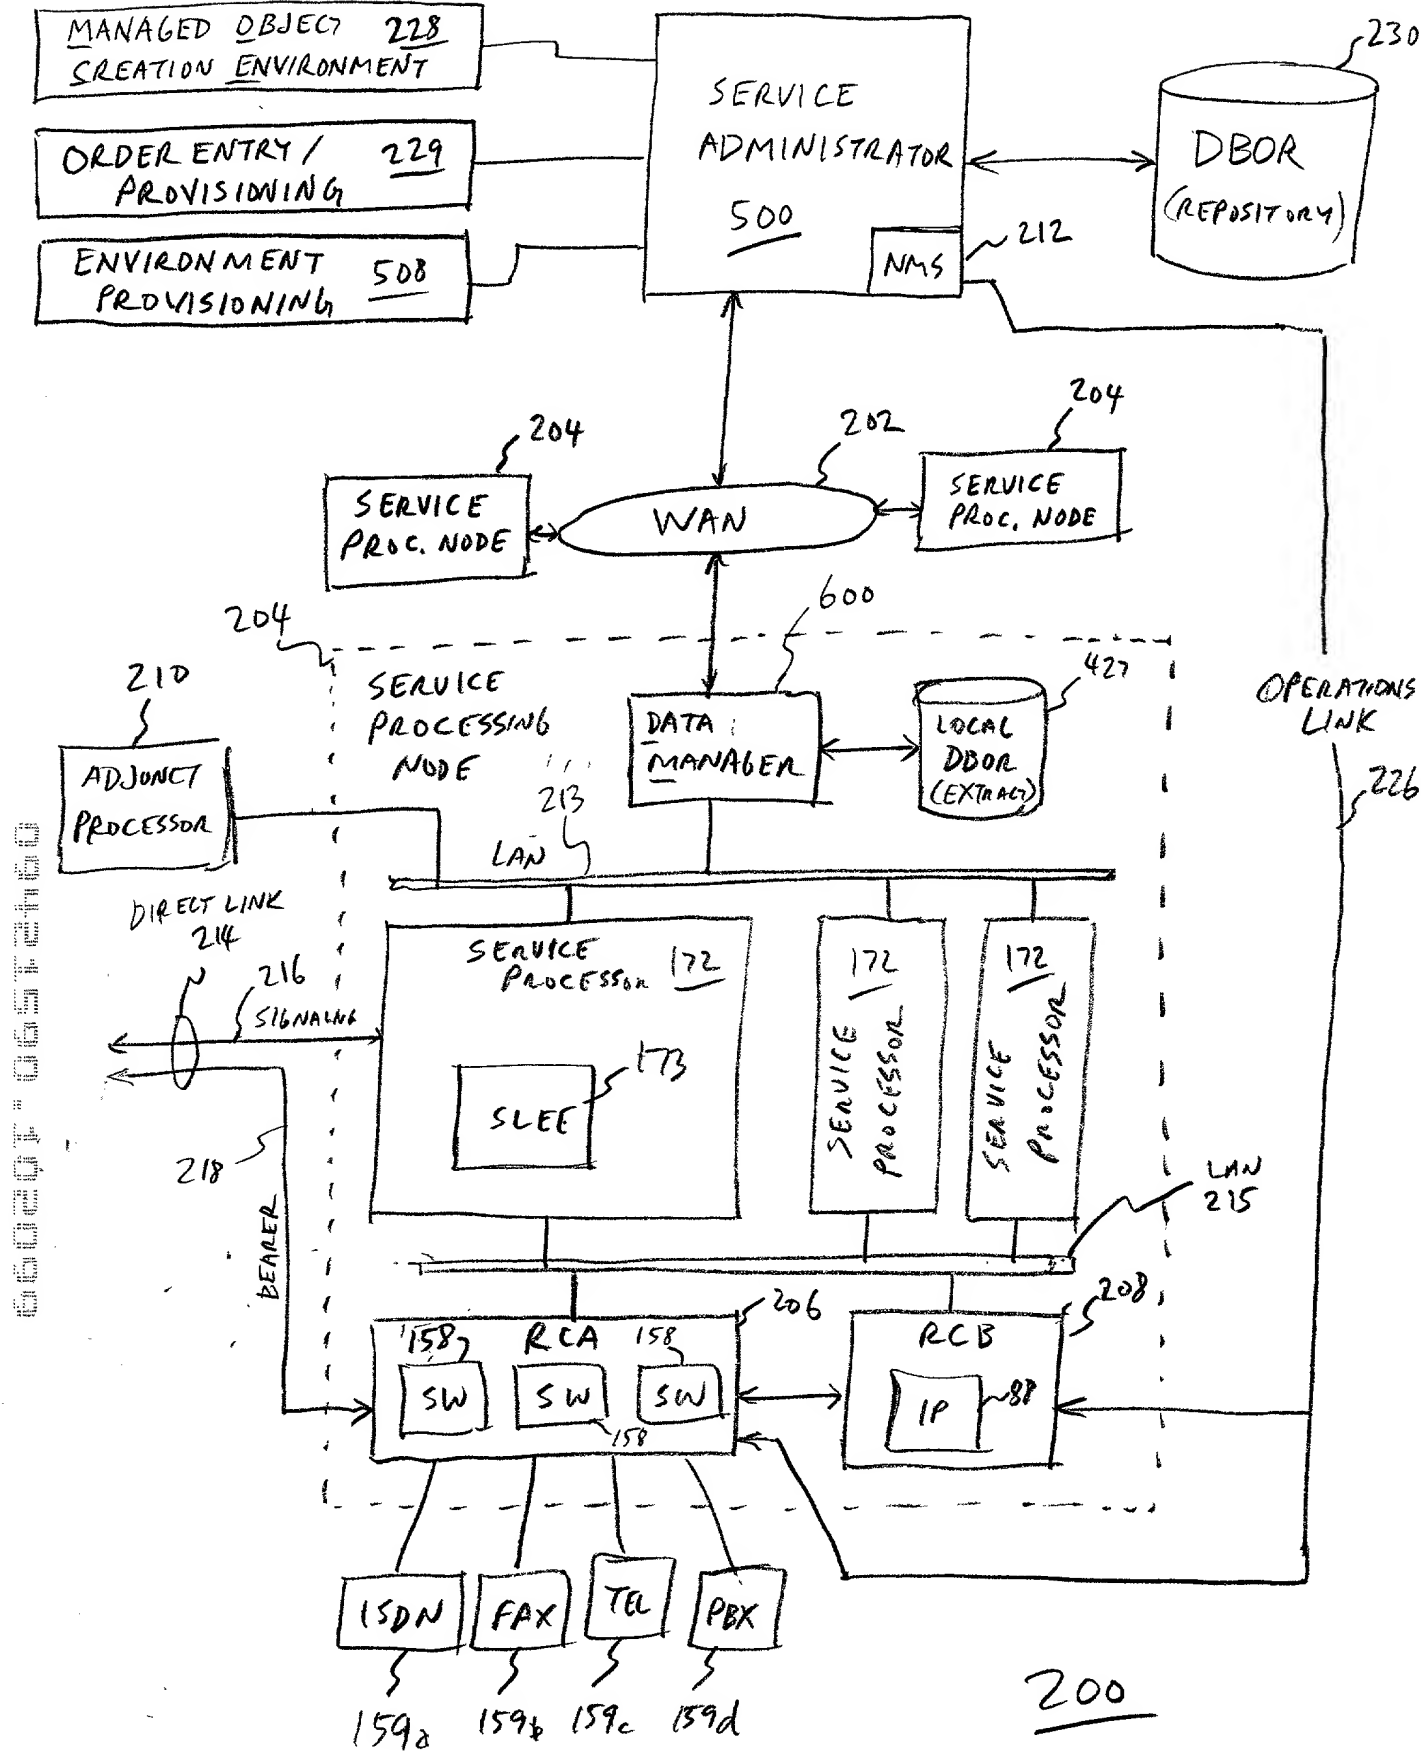 MANAGED OBJECT 228
CREATION ENVIRONMENT
ORDER ENTRY / 229
PROVISIONING
ENVIRONMENT 508
PROVISIONING
SERVICE
ADMINISTRATOR
500
NMS
212
230
DBOR
(REPOSITORY)
204
SERVICE
PROC. NODE
202
WAN
204
SERVICE
PROC. NODE
600
204
SERVICE
PROCESSING
NODE
210
ADJUNCT
PROCESSOR
DATA
MANAGER
427
LOCAL
DBOR
(EXTRACT)
OPERATIONS
LINK
226
213
LAN
DIRECT LINK
214
216
SIGNALNG
SERVICE
PROCESSOR 172
173
SLEE
172
SERVICE
PROCESSOR
172
SERVICE
PROCESSOR
218
BEARER
LAN
215
206
RCA
158
SW
SW
158
158
SW
208
RCB
IP
88
ISDN
FAX
TEL
PBX
159a
159b
159c
159d
200